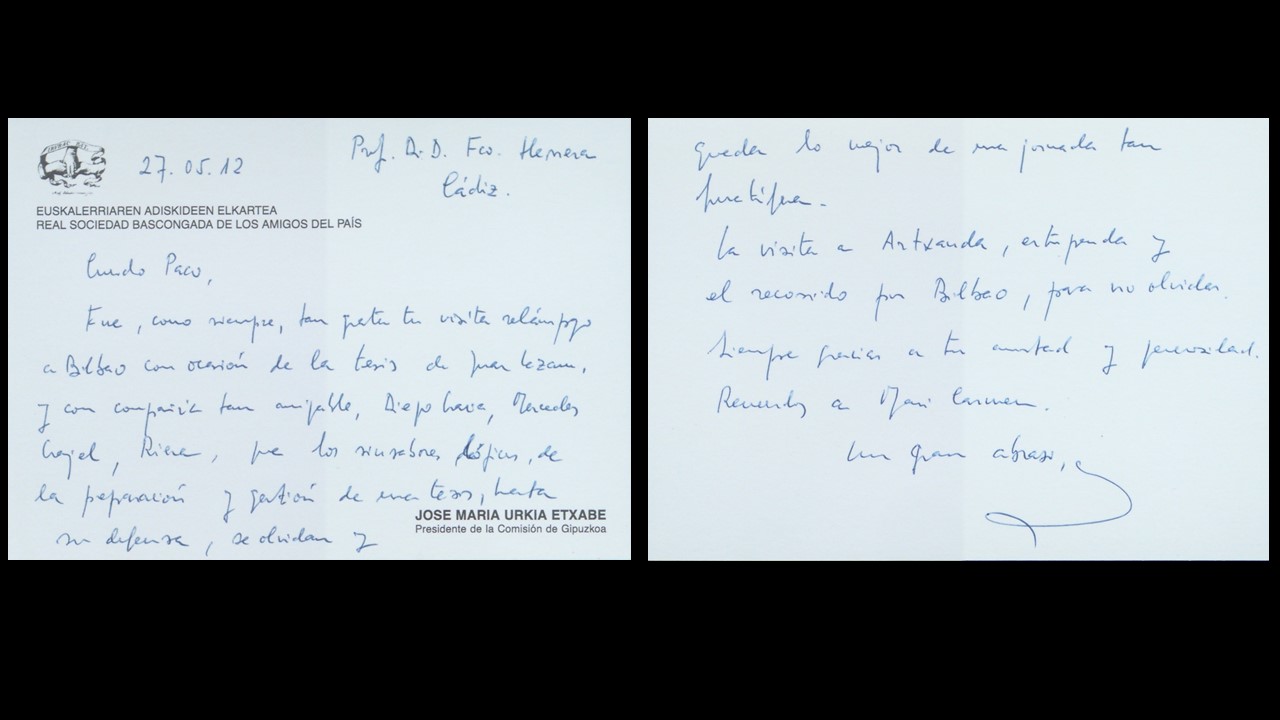 27.05.12
Prof. Dr. D. Fco. Herrera
Cádiz.
EUSKALERRIAREN ADISKIDEEN ELKARTEA
REAL SOCIEDAD BASCONGADA DE LOS AMIGOS DEL PAÍS
Querido Paco,
Fue, como siempre, tan grata tu visita relámpago
a Bilbao con ocasión de la tesis de Juan Lezaun,
y con compañía tan amigable, Diego Gracia, Mercedes
Riera, que los sinsabores lógicos, de
la preparación y gestión de una tesis, hasta
su defensa, se olvidan y
JOSE MARIA URKIA ETXABE
Presidente de la Comisión de Gipuzkoa
queda lo mejor de una jornada tan
fructífera.
La visita a Artxanda, estupenda y
el recorrido por Bilbao, para no olvidar.
Siempre gracias a tu amistad y generosidad.
Recuerdos a Mari Carmen.
Un gran abrazo,